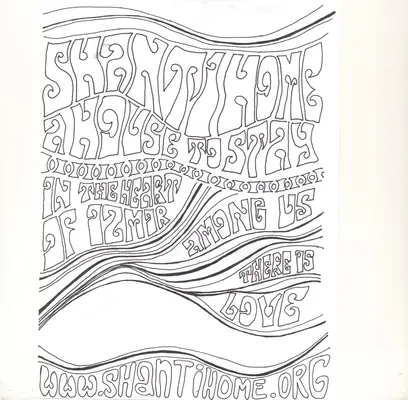 SHANTI HOME
A HOUSE TO STAY
IN THE HEART
OF IZMIR
AMONG US
THERE IS
LOVE
WWW.SHANTIHOME.ORG